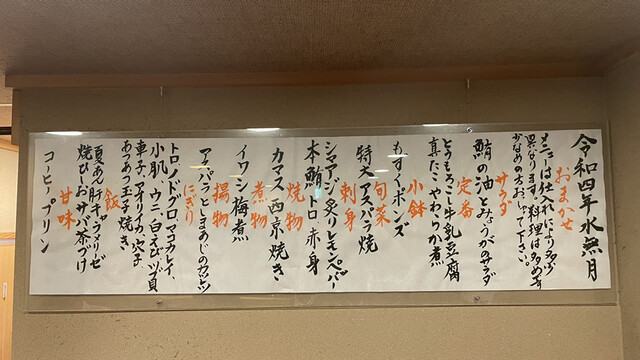 令和四年水無月
おまかせ
メニューは仕入れにより多少
異なります。料理は多めか
少なめの方おっしゃって下さい。
サラダ
鮪の油とみょうがのサラダ
定番
とうもろこし牛乳豆腐
真だこやわらか煮
小鉢
もずくポンズ
旬菜
特大アスパラ焼
刺身
シマアジ炙りレモンペッパー
本鮪トロ赤身
焼物
カマス西京焼き
煮物
イワシ梅煮
揚物
アスパラとしまあじのカツレツ
にぎり
トロ、ノドグロ、マコカレイ、
小肌、ウニ、白えび、ツブ貝
車子、アオリイカ、穴子
あつあつ玉子焼き
飯
焼ひしおサバ茶づけ
甘味
コーヒープリン